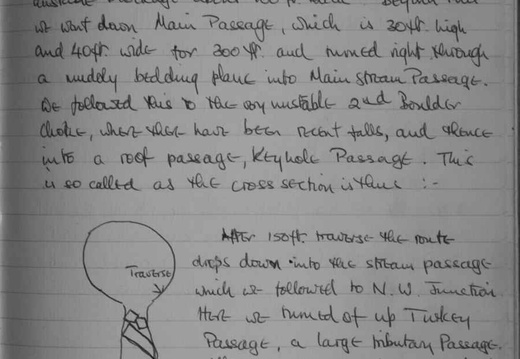 we went down Main Passage, which is 30ft. high
and 40ft. wide for 300ft. and turned right through
a muddy bedding plane into Main Stream Passage.
We followed this to the very unstable 2nd Boulder
Choke, where there have been recent falls, and thence
into a roof passage, Keyhole Passage. This
is so called as the cross section is thus :-
After 150ft. traverse the route
drops down into the stream passage
which we followed to N.W. Junction
Here we turned of up Turkey
Passage, a large tributary Passage.
Traverse